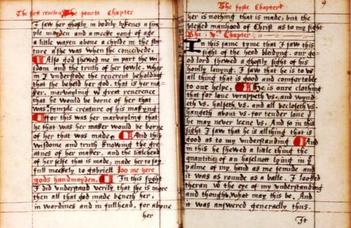 The first revela The fourth Chapter
I saw her ghostly in bodily lykenes a sim
ple mayden and a meeke yong of age
a little waxen aboue a childe in the sta
ture as she was when she conceivede.
Also god shewed me in part the wis
dom and the truth of her sowle. wher
in I vnderstode the reverent beholding
that she beheld her god. that is her ma
ker, marvayling w great reverence
that he would be borne of her that
was a symple creature of his makyng
for this was her marvayling that
he that was her maker would be borne
of her that was made. And this
wisdome and truth knowing the gre
atnes of her maker, and the littlehead
of her selfe that is made, made her to say
full meekely to gabriell loo me here
gods handmayden. In this syght
I did vnderstand verily that she is more
then all that god made beneth her.
in wordines and in fullhead. for aboue
her
The fyfte Chapter 9
her is nothing that is made, but the
blessed manhood of Christ as to my syght
The Vth Chapter
In this same tyme that I saw this
sight of the head bleidyng. our go
od lord shewed a ghostly sight of his
homely louyng. I saw that he is to vs
all thing that is good and comfortable
to our helpe. He is oure clothing
that for loue wrappeth vs. and wynd
eth vs. halseth vs. and all becloseth vs.
hangeth about vs. for tender loue
may never leeue vs. And so in this
sight I saw that he is all thing that is
good as to my vnderstanding And
in this he shewed a little thing the
quantitie of an haselnott lying in
palme of my hand as me semide and
it was as rounde as a balle. I looked
theran w the eye of my vnderstanding
and thought. What may this be. And
it was answered generally thus.
It